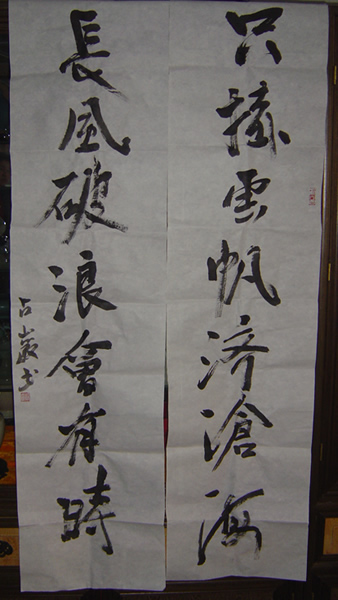 只掛雲帆济滄海
長風破浪會有時
占巖书